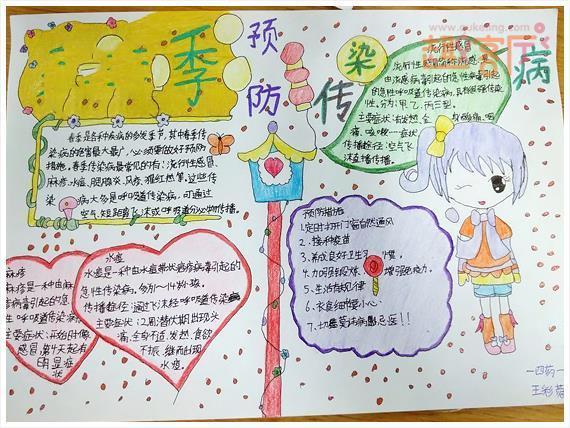 季
预
防
传
染
病
www.quketing.com
春季是各种疾病的多发季节,其中春季传
染病的危害最大最广,必须要做好预防
措施。春季传染病最常见的有:流行性感冒、
麻疹、水痘、腮腺炎、风疹、猩红热等,这些传
染病大多是呼吸道传染病,可通过
空气、短距离飞沫或呼吸道分泌物传播。
流行性感冒
流行性感冒简称流感,是
由流感病毒引起的
急性呼吸道传染病,具有很强传染
性,分为:甲、乙、丙三型。
主要症状:有发热、全身酸痛、咽
痛、咳嗽一症状
传播途径:空气飞
沫直播传播。
预防措施
1.定时打开门窗自然通风
2.接种疫苗
3.养成良好卫生习惯。
4.加强锻炼,增强免疫力。
5.生活有规律
6.衣食细节要小心
7.切莫要讳病忌医!!
麻疹
麻疹是一种由麻
疹病毒引起的急
性呼吸道传染病
主要症状:开始时像
感冒,第十天起有
明显症
状
水痘
水痘是一种由水痘带状疱疹病毒引起的
急性传染病。
传播途径:通过飞沫经呼吸道传染
主要症状:2周潜伏期出现头
痛,全身不适,发热,食欲
不振,继而出现
水痘。
王彩